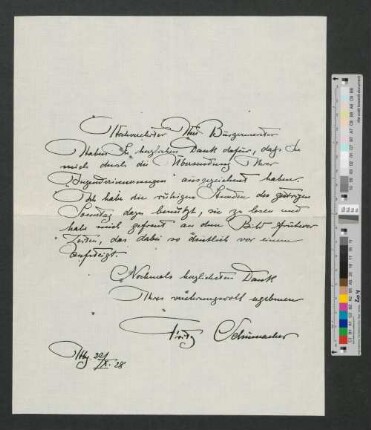 Hochverehrter Herr Bürgermeister
Haben Sie herzlichen Dank dafür, dass Sie
mich durch die Übersendung Ihrer
Jugenderinnerungen ausgezeichnet haben.
Ich habe die ruhigen Stunden des gestrigen
Sonntag dazu benutzt, sie zu lesen und
habe mich gefreut an dem Bild früherer
Zeiten, das dabei so deutlich vor einem
aufsteigt.
Nochmals herzlichsten Dank
Ihres verehrungsvoll ergebenen
Fritz Schumacher
Hbg 28